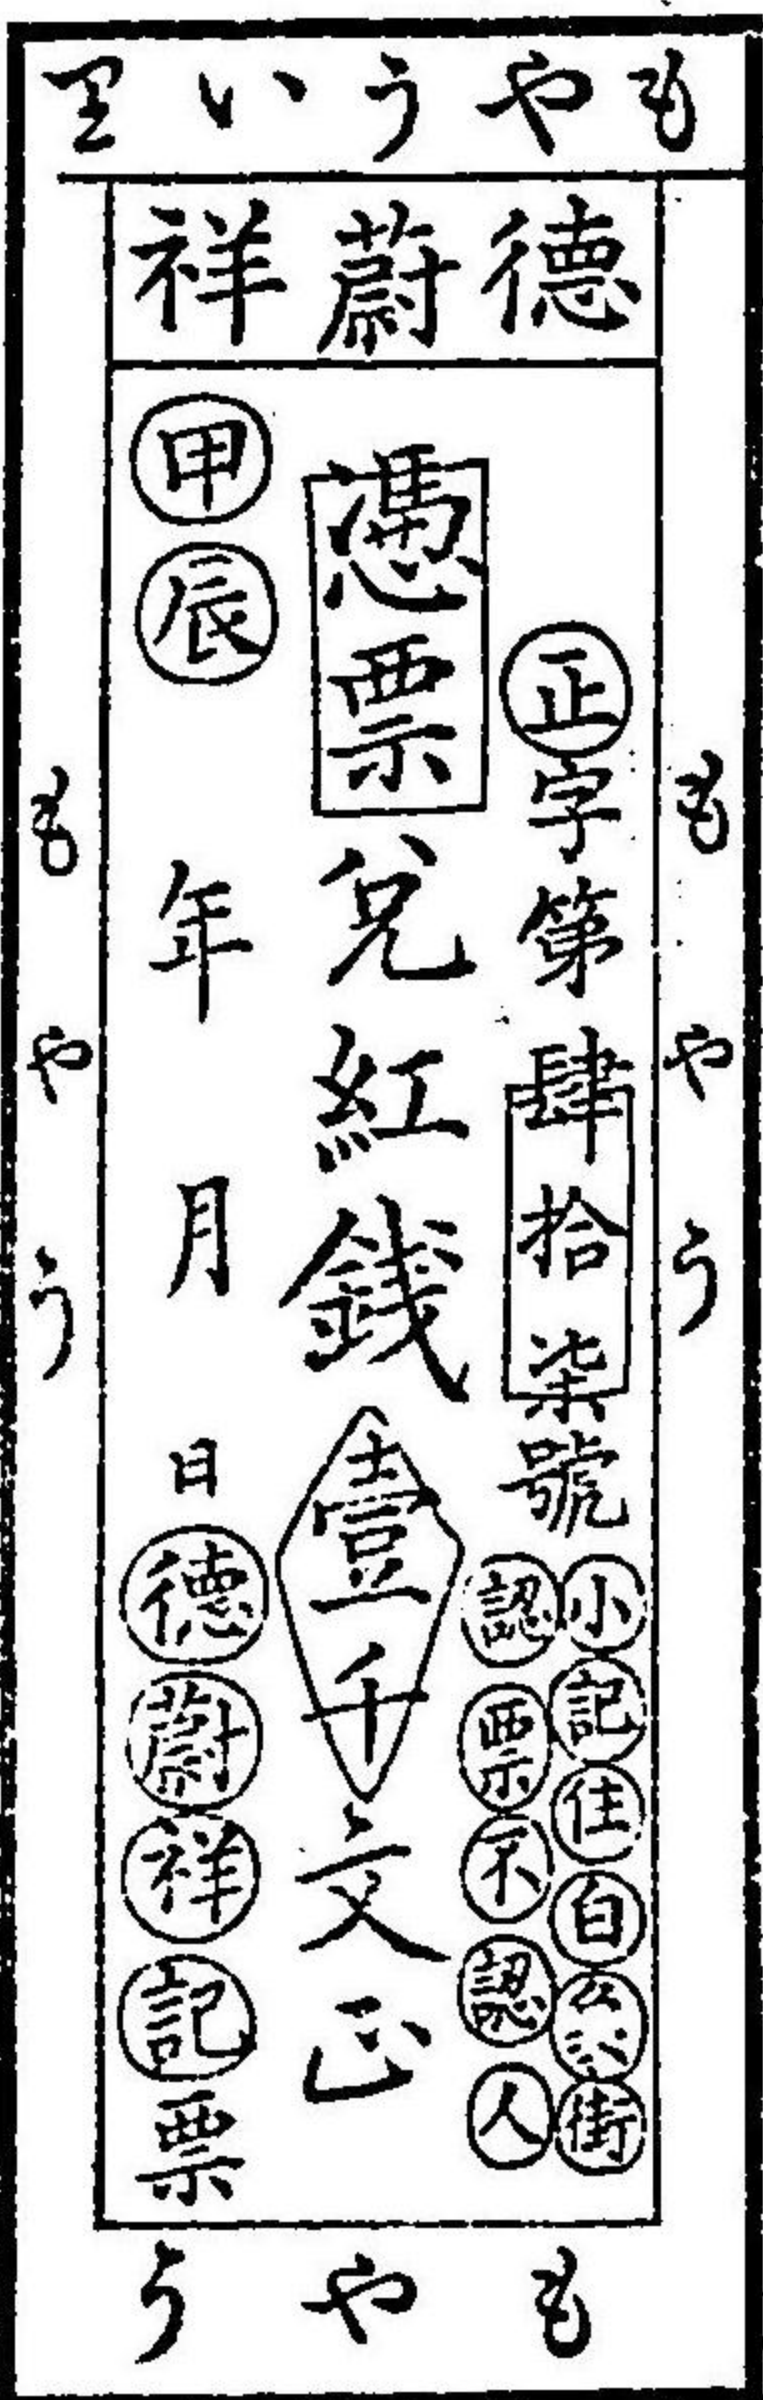 もやういり
德蔚祥
正字第肆拾柒號
小記住白 街
認票不認人
憑票兌紅錢壹千文正
甲辰年月日德蔚祥記票
もやう
もやう
もやう